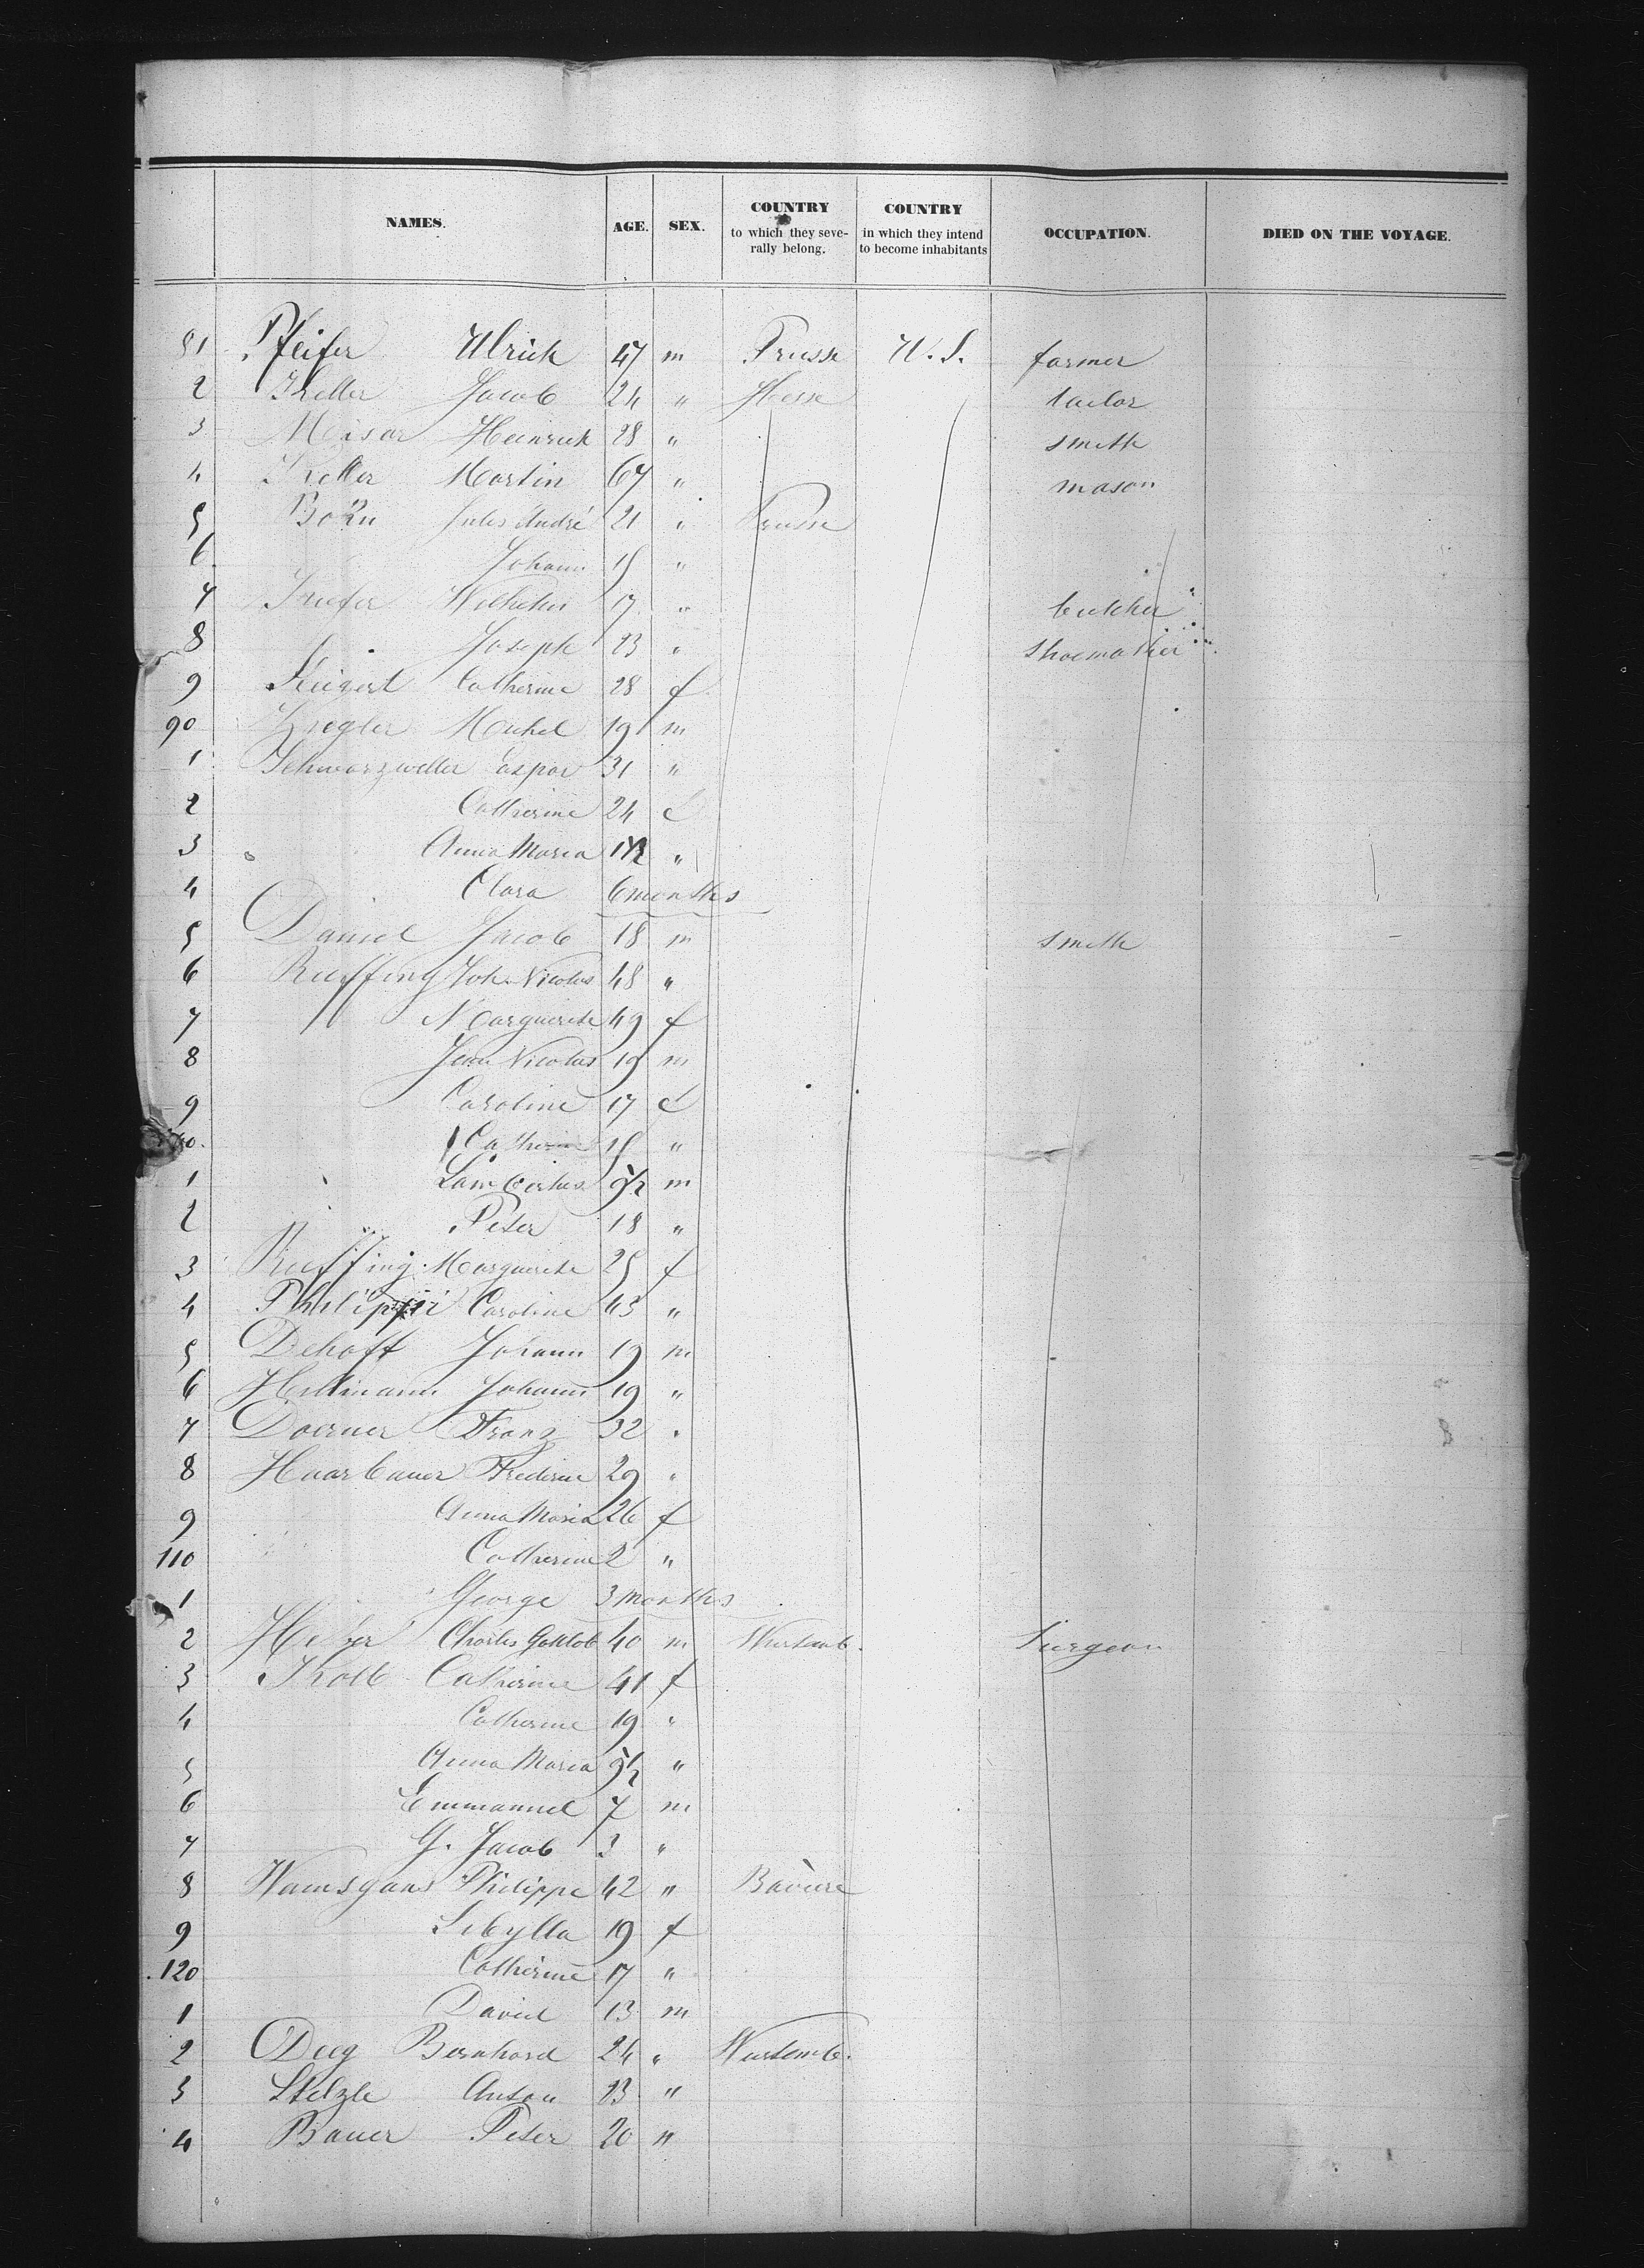 NAMES. AGE. SEX. COUNTRY to which they seve-rally belong. COUNTRY in which they intend to become inhabitants OCCUPATION. DIED ON THE VOYAGE.
81 Pfeifer Ulrich 47 m Prusse U.S. farmer
2 Keller Jacob 24 " Hesse tailor
3 Meisar Heinrich 28 " smith
4 Keller Martin 67 " mason
5 Born Jules André 21 " Prusse
6 Johann 15 "
7 Kiefer Wilhelm 17 " butcher
8 Joseph 23 " shoemaker
9 Catherine 28 f
90 Ziegler Michel 19 m
1 Schwarzweller Caspar 31 "
2 Catherine 24 f
3 Anna Maria 1 1/2 "
4 Clara 6 months
5 Daniel Jacob 18 m smith
6 Rueffing Joh. Nicolas 48 "
7 Marguerite 49 f
8 Jean Nicolas 19 m
9 Caroline 17 f
100. Catherine 15 "
1 Lambertus 9 1/2 m
2 Peter 18 "
3 Rueffing Marguerite 25 f
4 Philippi Caroline 43 "
5 Dehoff Johann 19 m
6 Johann 19 "
7 Doerner Franz 32 "
8 Haarbauer 29 "
9 Anna Maria 26 f
110 Catherine 2 "
1 George 3 months
2 Charles Gottlob 40 m Wurtemb. Surgeon
3 Kolb Catherine 41 f
4 Catherine 19 "
5 Anna Maria 9 1/2 "
6 Emmanuel 7 m
7 G. Jacob 3 "
8 Wamsgans Philippe 42 " Bavière
9 Sibylla 19 f
120 Catherine 17 "
1 David 13 m
2 Deeg Bernhard 24 " Wurtemb.
3 Stelzle Anton 23 "
4 Bauer Peter 20 "